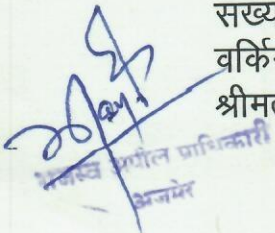 सख्य
वर्कि
श्रीमत
राजस्व अपील प्राधिकारी
अजमेर